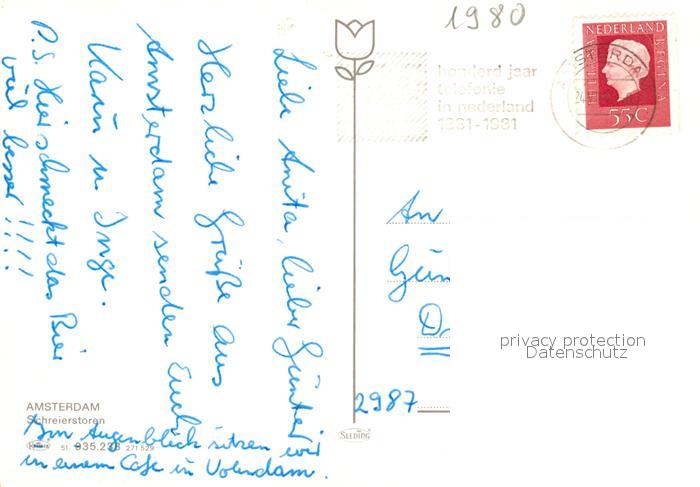 Liebe Anita, lieber Günter
Herzliche Grüße aus
Amsterdam senden Euch
Karin u. Inge.
P.S. Hier schmeckt das Bier
viel besser!!!!
Am Augenblick sitzen wir
in einem Cafe in Volendam.
AMSTERDAM
Schreierstoren
51. 935.238 271 529
SLEDING
1980
honderd jaar
telefonie
in nederland
1881-1981
NEDERLAND
JULIANA REGINA
55C
An
Gün
2987
privacy protection
Datenschutz